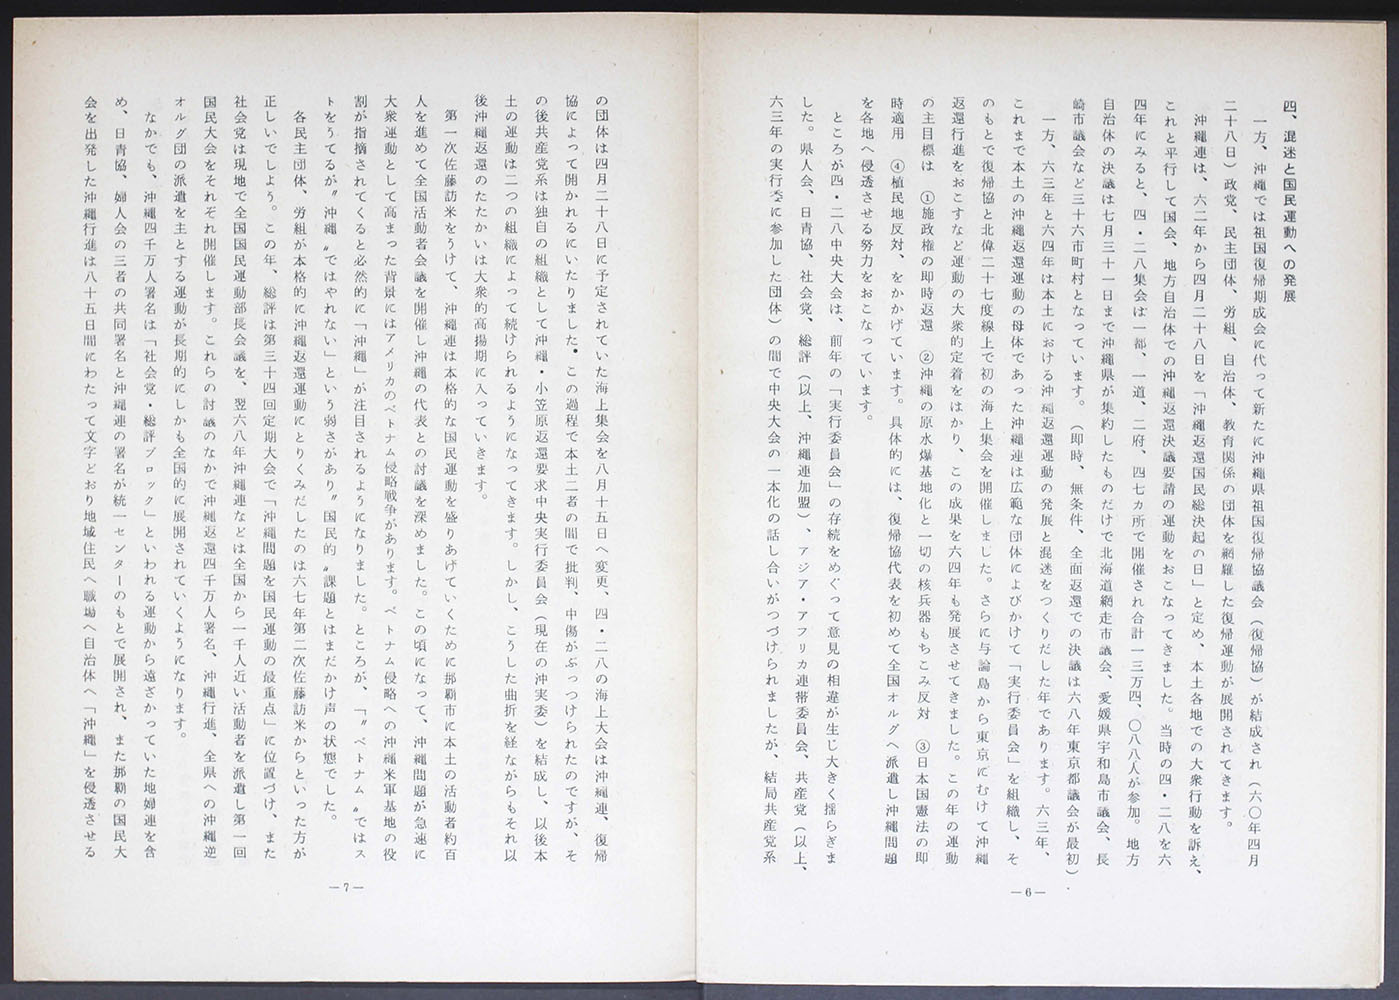 四、混迷と国民運動への発展
一方、沖縄では祖国復帰期成会に代って新たに沖縄県祖国復帰協議会（復帰協）が結成され（六〇年四月
二十八日）政党、民主団体、労組、自治体、教育関係の団体を網羅した復帰運動が展開されてきます。
沖縄連は、六二年から四月二十八日を「沖縄返還国民総決起の日」と定め、本土各地での大衆行動を訴え、
これと平行して国会、地方自治体での沖縄返還決議要請の運動をおこなってきました。当時の四・二八を六
四年にみると、四・二八集会は一都、一道、二府、四七カ所で開催され合計一三万四、〇八八人が参加。地方
自治体の決議は七月三十一日まで沖縄県が集約したものだけで北海道網走市議会、愛媛県宇和島市議会、長
崎市議会など三十六市町村となっています。（即時、無条件、全面返還での決議は六八年東京都議会が最初）
一方、六三年と六四年は本土における沖縄返還運動の発展と混迷をつくりだした年であります。六三年、
これまで本土の沖縄返還運動の母体であった沖縄連は広範な団体によびかけて「実行委員会」を組織し、そ
のもとで復帰協と北偉二十七度線上で初の海上集会を開催しました。さらに与論島から東京にむけて沖縄
返還行進をおこすなど運動の大衆的定着をはかり、この成果を六四年も発展させてきました。この年の運動
の主目標は　①施政権の即時返還　②沖縄の原水爆基地化と一切の核兵器もちこみ反対　③日本国憲法の即
時適用　④植民地反対、をかかげています。具体的には、復帰協代表を初めて全国オルグへ派遣し沖縄問題
を各地へ侵透させる努力をおこなっています。
ところが四・二八中央大会は、前年の「実行委員会」の存続をめぐって意見の相違が生じ大きく揺らぎま
した。県人会、日青協、社会党、総評（以上、沖縄連加盟）、アジア・アフリカ連帯委員会、共産党（以上、
六三年の実行委に参加した団体）の間で中央大会の一本化の話し合いがつづけられましたが、結局共産党系
—6—
の団体は四月二十八日に予定されていた海上集会を八月十五日へ変更、四・二八の海上大会は沖縄連、復帰
協によって開かれるにいたりました。この過程で本土二者の間で批判、中傷がぶっつけられたのですが、そ
の後共産党系は独自の組織として沖縄・小笠原返還要求中央実行委員会（現在の沖実委）を結成し、以後本
土の運動は二つの組織によって続けられるようになってきます。しかし、こうした曲折を経ながらもそれ以
後沖縄返還のたたかいは大衆的高揚期に入っていきます。
第一次佐藤訪米をうけて、沖縄連は本格的な国民運動を盛りあげていくために那覇市に本土の活動者約百
人を進めて全国活動者会議を開催し沖縄の代表との討議を深めました。この頃になって、沖縄問題が急速に
大衆運動として高まった背景にはアメリカのベトナム侵略戦争があります。ベトナム侵略への沖縄米軍基地の役
割が指摘されてくると必然的に「沖縄」が注目されるようになりました。ところが、「〝ベトナム〟ではス
トをうてるが〝沖縄〟ではやれない」という弱さがあり〝国民的〟課題とはまだかけ声の状態でした。
各民主団体、労組が本格的に沖縄返還運動にとりくみだしたのは六七年第二次佐藤訪米からといった方が
正しいでしょう。この年、総評は第三十四回定期大会で「沖縄問題を国民運動の最重点」に位置づけ、また
社会党は現地で全国国民運動部長会議を、翌六八年沖縄連などは全国から一千人近い活動者を派遣し第一回
国民大会をそれぞれ開催します。これらの討議のなかで沖縄返還四千万人署名、沖縄行進、全県への沖縄逆
オルグ団の派遣を主とする運動が長期的にしかも全国的に展開されていくようになります。
なかでも、沖縄四千万人署名は「社会党・総評ブロック」といわれる運動から遠ざかっていた地婦連を含
め、日青協、婦人会の三者の共同署名と沖縄連の署名が統一センターのもとで展開され、また那覇の国民大
会を出発した沖縄行進は八十五日間にわたって文字どおり地域住民へ職場へ自治体へ「沖縄」を侵透させる
—7—